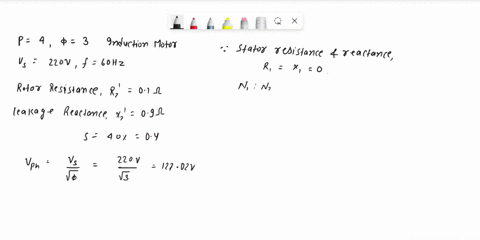 P = 4 , ϕ = 3 Induction Motor
V_s = 220V , f = 60Hz
Rotor Resistance, R_2' = 0.1 Ω
leakage Reactance, x_2' = 0.9 Ω
s = 40% = 0.4
V_ph = V_s / √ϕ = 220V / √3 = 127.02V
∵ Stator resistance & reactance,
R_1 = x_1 = 0
N_1 : N_2